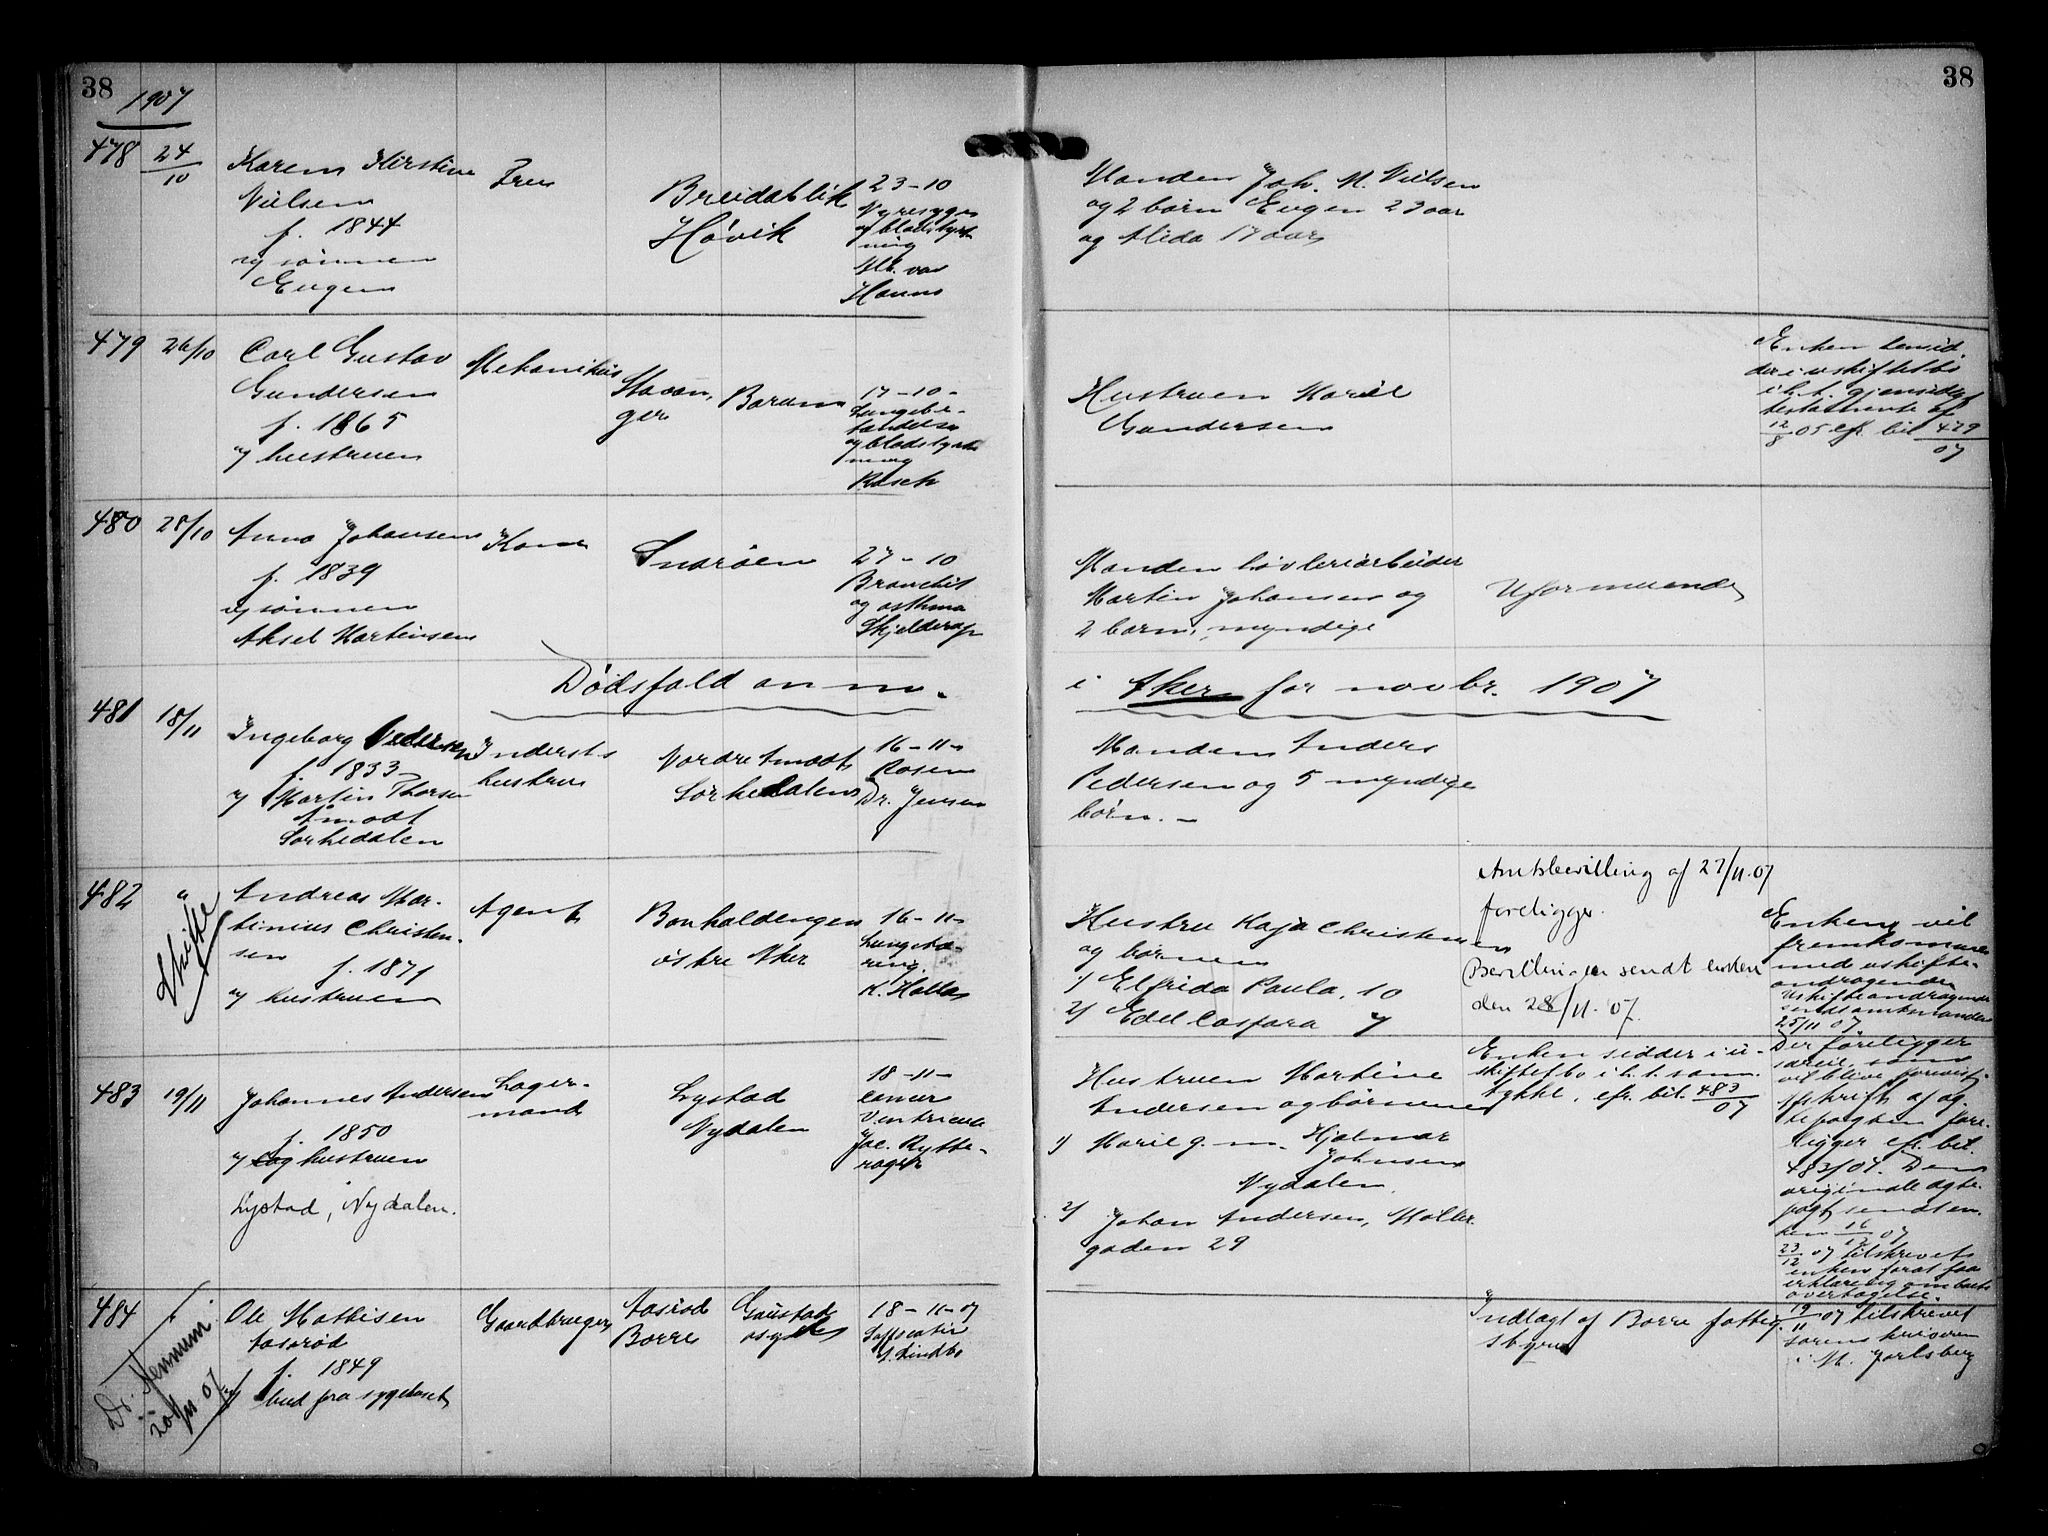 38
1907
38
478
24/10
Karen Kirstine
Nielsen
f. 1844
v/ sønnen
Eugen
Frue
Breidablik
Høvik
23-10
Nyresyge
og blodstyrt
ning
Hanna
Manden Joh. M. Nielsen
og 2 børn Eugen 23 aar
og Alida 17 aar
479
26/10
Carl Gustav
Gundersen
f. 1865
v/ hustruen
Mekanikus
Stavan,
ger
Bærum
17-10-
Lungebe-
tændelse
og blodstyrt
ning
Rasch
Hustruen Marie
Gundersen
Enken hensid.
der i uskiftet bo
i h.t. gjensidigt
testamente af
12/8 05 cfr. bil 479/07
480
28/10
Anna Johansen
f. 1839
v/ sønnen
Aksel Martinsen
Kone
Snarøen
27-10
Bronchit
og asthma
Skjelderup
Manden høvleriarbeider
Martin Johansen og
2 børn, myndige
Uformuende
Dødsfald anm.
i Aker for novbr. 1907
481
18/11
Ingeborg Pedersen
f. 1833
v/ Martin Thorsen
Åmodt
Sørkedalen
Inderst
hustru
Nordre Åmodt
Sørkedalen
16-11-
Rosen
Dr. Jensen
Manden Anders
Pedersen og 5 myndige
børn. -
482
"
Skifte
Andreas Mar-
tinius Christen-
sen
f. 1871
v/ hustruen
Agent
Bonkaldengen
østre Aker
16-11-
Lungetæ-
ring.
K. Hallas
Hustru Kaja Christensen
og børnene
1) Elfrida Paula, 10
2) Edel Casfara 7
Amtsbevilling af 27/11.07
foreligger.
Bevillingen sendt enken
den 28/11.07.
Enken vil
fremkomme
med uskifte-
andragende
Uskifteandragende
sendt amtmanden
25/11 07
483
19/11
Johannes Andersen
f. 1850
v/ hustruen
Lystad, Nydalen.
Lager-
mand
Lystad
Nydalen
18-11-
Cancer
Ventriculi
Joc. Rytte-
rager
Hustruen Martine
Andersen og børnene
1) Marie g. m. Hjalmar
Johnsen
Nydalen.
2) Johan Andersen, Møller
gaden 29
Enken sidder i u-
skiftet bo i h.t. sam-
tykke, cfr. bil. 483/07
Der foreligger
særeie, som
vil blive forevist.
Afskrift af æg-
tepagten fore-
ligger cfr. bil.
483/07. Den
originale ægte-
pagt sendt en-
ken 16/12 07
23/12 07 tilskrevet
enken forat faa
erklæring om boets
overtagelse.
484
"
Dr. Hennum
20/11 07
Ole Mathisen
Aasrød
f. 1849
v/ bud fra sygehuset
Gaardbruger
Aasrød
Borre
Gaustad
asyl
18-11-07
Suffocatio
Lindbo
Indlagt af Borre fattig-
styre
19/11 07 tilskrevet
sorenskriveren
i N. Jarlsberg